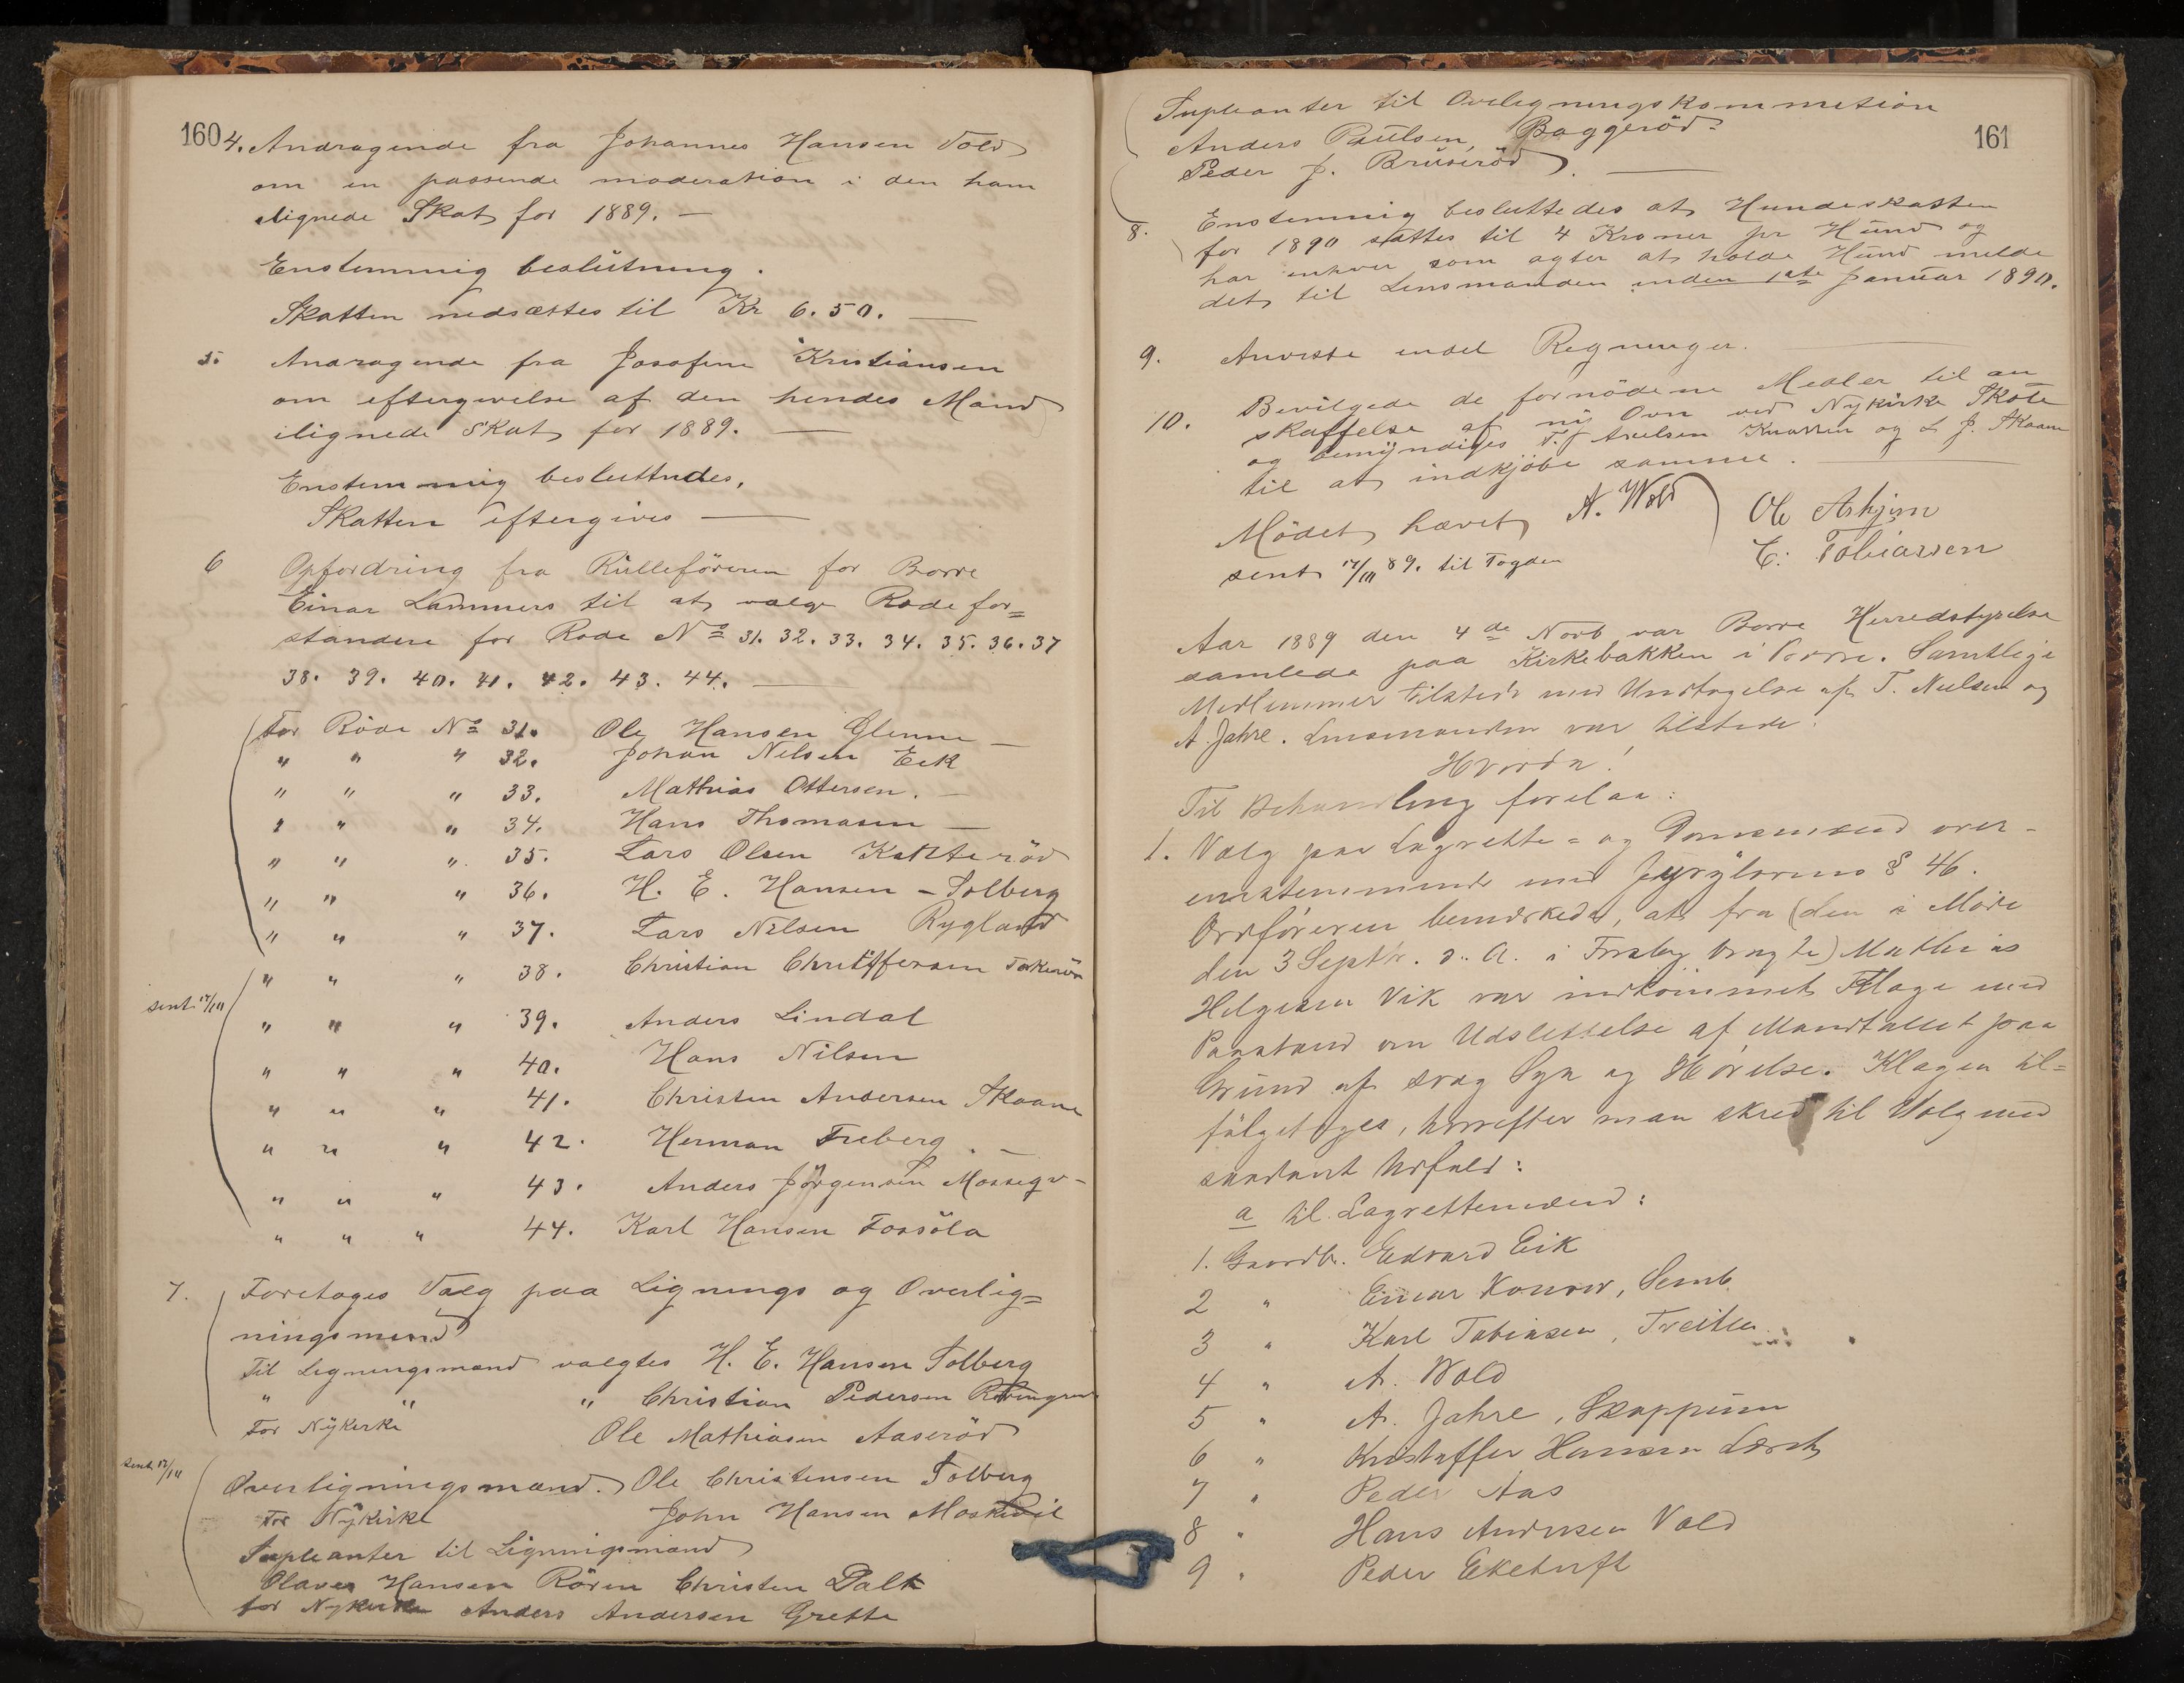 160
4. Andragende fra Johannes Hansen Vold
om en passende moderation i den ham
ilignede Skat for 1889. —
Enstemmig beslutning.
Skatten nedsættes til Kr 6.50. —
5. Andragende fra Josefine Kristiansen
om eftergivelse af den hendes Mand
ilignede Skat for 1889. —
Enstemmig besluttedes,
Skatten eftergives —
6 Opfordring fra Rulleföreren for Borre
Einar Lammers til at vælge Rodefor=
standere for Rode No 31. 32. 33. 34. 35. 36. 37
38. 39. 40. 41. 42. 43. 44. —
For Rode No 31. Ole Hansen Glenne —
" " " 32. Johan Nilsen Eek
" " " 33. Mathias Ottersen. —
" " " 34. Hans Thomasen —
" " " 35. Lars Olsen
" " " 36. H. E. Hansen - Solberg
" " " 37. Lars Nilsen Rygland
" " " 38. Christian Christoffersen
sent 12/11
" " " 39. Anders Lindal
" " " 40. Hans Nilsen
" " " 41. Christen Andersen Skaane
" " " 42. Herman Freberg —
" " " 43. Anders Jörgensen
" " " 44. Karl Hansen Fossöla
7. Foretages Valg paa Lignings og Overlig=
ningsmend
Til Ligningsmænd valgtes H. E. Hansen Solberg
" " " Christian Pedersen
For Nykirke Ole Mathiasen Aaseröd
sent 12/11
Overligningsmænd. Ole Christensen Solberg
For Nykirke John Hansen
Supleanter til Ligningsmænd
Olaves Hansen Rören Christen Dalk
for Nykirke Anders Andersen Grette
161
Supleanter til Overligningskommetion
Anders Paulsen, Baggeröd
Peder J. Bruseröd. —
8. Enstemmig besluttedes at Hundeskatten
for 1890 sættes til 4 Kroner pr Hund og
har enhver som agter at holde Hund melde
det til Lensmanden inden 1ste Januar 1890.
9. Anviste endel Regninger. —
10. Bevilgede de fornödene Medler til an
skaffelse af ny Ovn ved Nykirke Skole
og bemyndiges T. J Axelsen Knatten og L J. Skaane
til at indkjöbe samme. —
Mödet hævet A. Wold Ole Askjem
sent 12/11 89. til Fogden E. Tobiassen
Aar 1889 den 4de Novb var Borre Herredstyrelse
samlede paa Kirkebakken i Borre. Samtlige
Medlemmer tilstede med Undtagelse af T. Nielsen og
A. Jahre. Lensmanden var tilstede.
Hvorda!
Til Behandling forelaa:
1. Valg paa Lagrette= og Domsmænd over-
ensstemmende med Jurylovens § 46.
Ordföreren bemærkede, at fra (den i Möde
den 3 Septbr. d. A. i Forslag bragte) Mathias
Helgesen Vik var indkommet Klage med
Paastand om Udslettelse af Mandtallet paa
Grund af svag Syn og Hörelse. Klagen til=
fölgetoges, hvorefter man skred til Valg med
saadant Udfald:
a til Lagrettemænd:
1. Gaardb. Edvard Eik
2 " Einar Konow, Semb
3 " Karl Tobiasen, Freiten
4 " A. Wold
5 " A. Jahre, Skoppum
6 " Kristoffer Hansen
7 " Peder Aas
8 " Hans Andersen Vold
9 " Peder Eketuft